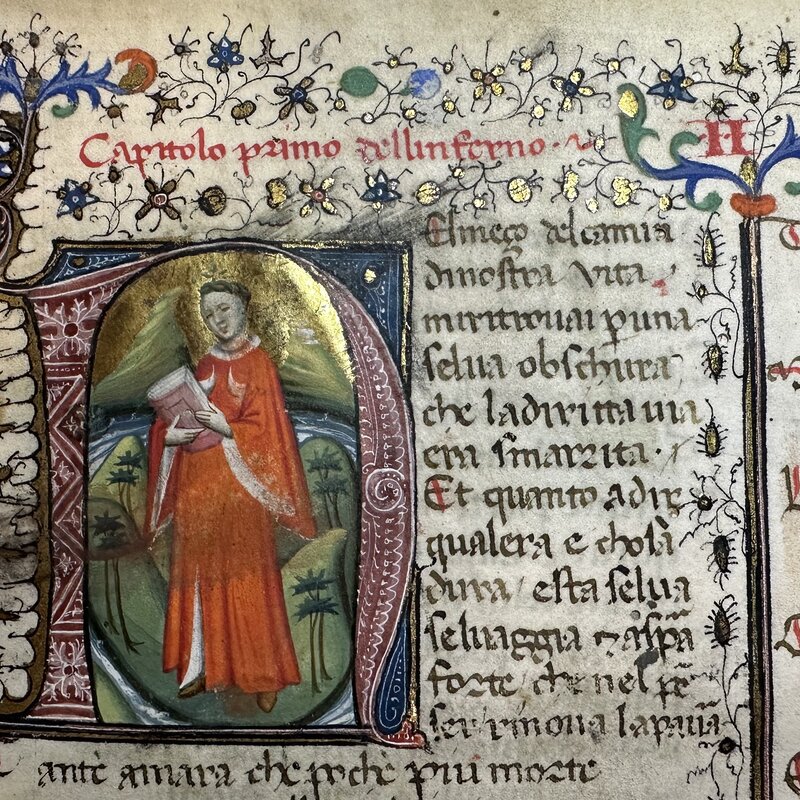 Capitolo primo dellinferno
H
N
El meço del camin
di nostra vita
mi ritrouai p una
selua obschura
che la diritta uia
era smarrita.
Et quanto a dir
qual era e chosa
dura / esta selua
seluaggia & aspra
forte / che nel pē
sier rinoua la paura
Tante amara che poche piu morte